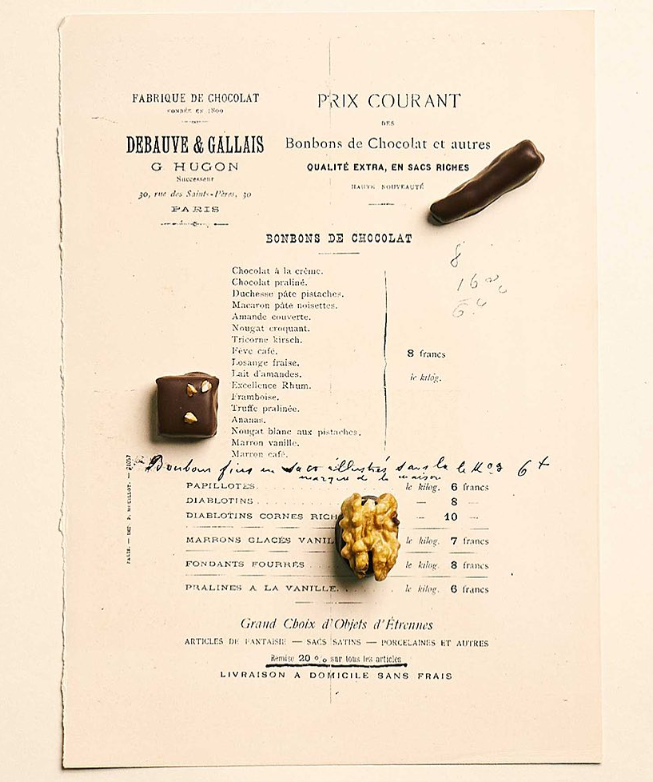 FABRIQUE DE CHOCOLAT
FONDÉE EN 1800
DEBAUVE & GALLAIS
G HUGON
Successeur
30, rue des Saints-Pères, 30
PARIS
PRIX COURANT
DES
Bonbons de Chocolat et autres
QUALITÉ EXTRA, EN SACS RICHES
HAUTE NOUVEAUTÉ
BONBONS DE CHOCOLAT
Chocolat à la crême.
Chocolat praliné.
Duchesse pâte pistaches.
Macaron pâte noisettes.
Amande couverte.
Nougat croquant.
Tricorne kirsch.
Fève café.
Losange fraise.
Lait d'amandes.
Excellence Rhum.
Framboise.
Truffe pralinée.
Ananas.
Nougat blanc aux pistaches.
Marron vanille.
Marron café.
8 francs
le kilog.
8
Bonbons fins en sacs illustrés
marque de la maison
PAPILLOTES le kilog. 6 francs
DIABLOTINS — 8 —
DIABLOTINS CORNES RICH — 10 —
MARRONS GLACÉS VANIL le kilog. 7 francs
FONDANTS FOURRÉS le kilog. 8 francs
PRALINES A LA VANILLE. le kilog. 6 francs
Grand Choix d'Objets d'Étrennes
ARTICLES DE FANTAISIE — SACS SATINS — PORCELAINES ET AUTRES
Remise 20 % sur tous les articles
LIVRAISON A DOMICILE SANS FRAIS